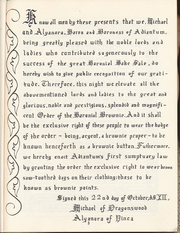 Know all men by these presents that we, Michael
and Alynora, Baron and Baroness of Adiantum,
being greatly pleased with the noble lords and
ladies who contributed so generously to the
success of the great Baronial Bake Sale, do
hereby wish to give public recognition of our grati-
tude. Therefore, this night we elevate all
the abovementioned lords and ladies to the great and
glorious, noble and prestigious, splendid and magnifi-
cent Order of the Baronial Brownie. And it shall
be the exclusive right of these people to wear the badge
of the order - being, erased, a brownie proper - to be
known henceforth as a brownie button. Furthermore,
we hereby enact Adiantum's first sumptuary law
by granting the order the exclusive right to wear brown
saw-toothed dags on their clothing; these to be
known as brownie points.
Signed this 22nd day of October, AS XII,
Michael of Dragonswood
Alynora of Vinca